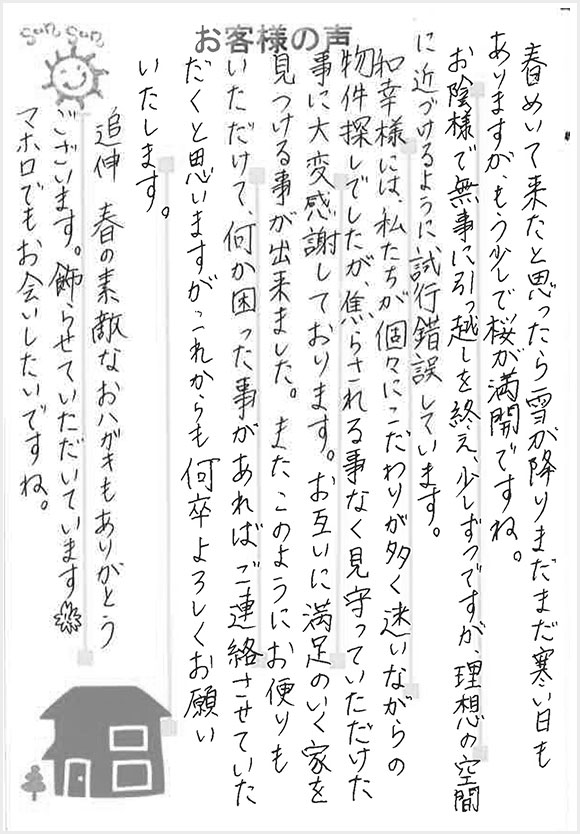 お客様の声
Sun Sun
春めいて来たと思ったら雪が降りまだまだ寒い日も
ありますが、もう少しで桜が満開ですね。
お陰様で無事に引っ越しを終え、少しずつですが、理想の空間
に近づけるように、試行錯誤しています。
和幸様には、私たちが個々にこだわりが多く迷いながらの
物件探しでしたが、焦らされる事なく見守っていただけた
事に大変感謝しております。お互いに満足のいく家を
見つける事が出来ました。またこのようにお便りも
いただけて、何か困った事があればご連絡させていた
だくと思いますがこれからも何卒よろしくお願い
いたします。
追伸 春の素敵なおハガキもありがとう
ございます。飾らせていただいています
マホロでもお会いしたいですね。